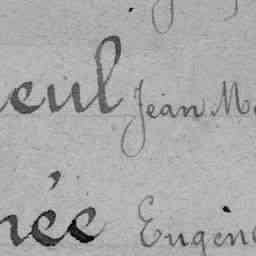 eul Jean M
née Eugen